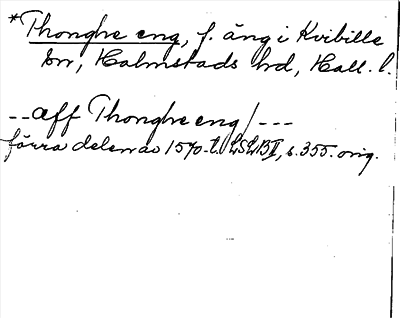 *Thonghe eng, f. äng i Kvibille
sn, Halmstads hd, Hall. l.
-- aff Thonghe eng/---
förra delen av 1570-t. LSLBII, s. 355. orig.